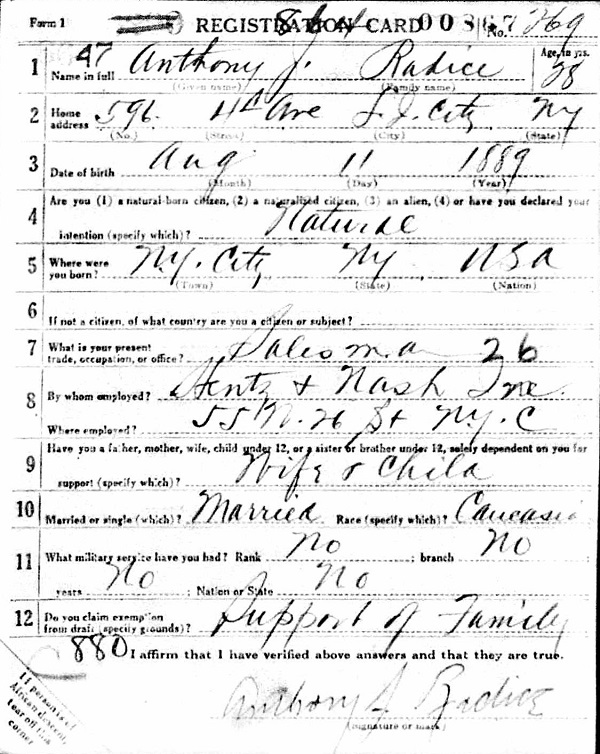 Form 1 REGISTRATION CARD No. 269
1 47 Anthony J. Radice Age, in yrs. 28
Name in full (Given name) (Family name)
2 Home address 596 4th Ave L.I. City NY
(No.) (Street) (City) (State)
3 Date of birth Aug 11 1889
(Month) (Day) (Year)
4 Are you (1) a natural-born citizen, (2) a naturalized citizen, (3) an alien, (4) or have you declared your
intention (specify which)? Natural
5 Where were you born? N.Y. City NY USA
(Town) (State) (Nation)
6 If not a citizen, of what country are you a citizen or subject?
7 What is your present trade, occupation, or office? Salesman 26
8 By whom employed? Hentz & Nash Inc.
Where employed? 55 W. 26 St N.Y.C
9 Have you a father, mother, wife, child under 12, or a sister or brother under 12, solely dependent on you for
support (specify which)? Wife & Child
10 Married or single (which)? Married Race (specify which)? Caucasia
11 What military service have you had? Rank No ; branch No
years No ; Nation or State No
12 Do you claim exemption from draft (specify grounds)? Support of Family
880 I affirm that I have verified above answers and that they are true.
Anthony J. Radice
(Signature or mark)
If person is of
African descent,
tear off this
corner